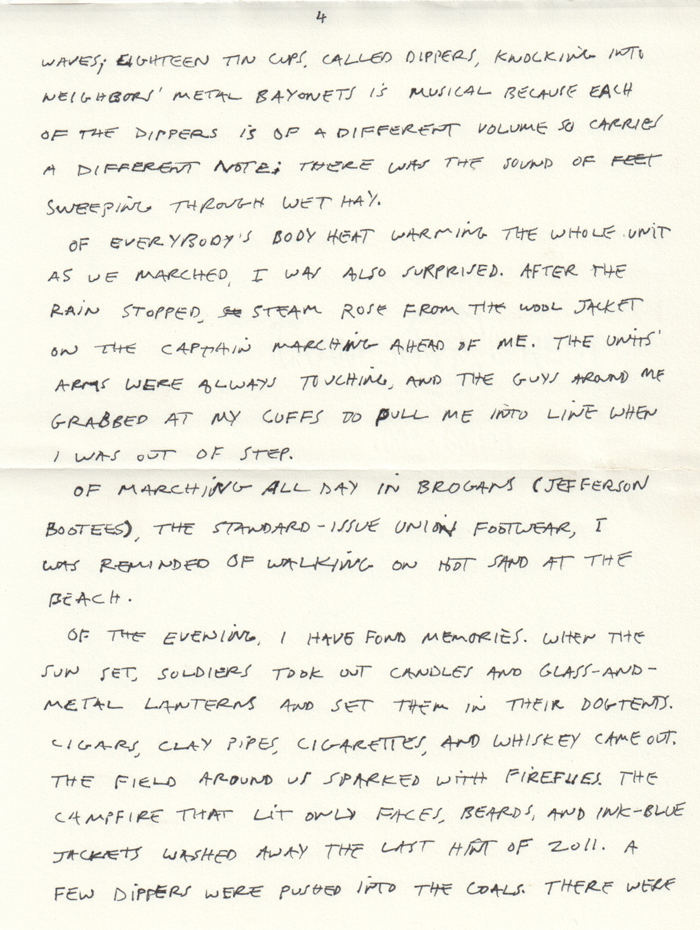 4
WAVES; EIGHTEEN TIN CUPS, CALLED DIPPERS, KNOCKING INTO
NEIGHBORS' METAL BAYONETS IS MUSICAL BECAUSE EACH
OF THE DIPPERS IS OF A DIFFERENT VOLUME SO CARRIES
A DIFFERENT NOTE; THERE WAS THE SOUND OF FEET
SWEEPING THROUGH WET HAY.
OF EVERYBODY'S BODY HEAT WARMING THE WHOLE UNIT
AS WE MARCHED, I WAS ALSO SURPRISED. AFTER THE
RAIN STOPPED, STEAM ROSE FROM THE WOOL JACKET
ON THE CAPTAIN MARCHING AHEAD OF ME. THE UNITS'
ARMS WERE ALWAYS TOUCHING, AND THE GUYS AROUND ME
GRABBED AT MY CUFFS TO PULL ME INTO LINE WHEN
I WAS OUT OF STEP.
OF MARCHING ALL DAY IN BROGANS (JEFFERSON
BOOTEES), THE STANDARD-ISSUE UNION FOOTWEAR, I
WAS REMINDED OF WALKING ON HOT SAND AT THE
BEACH.
OF THE EVENING, I HAVE FOND MEMORIES. WHEN THE
SUN SET, SOLDIERS TOOK OUT CANDLES AND GLASS-AND-
METAL LANTERNS AND SET THEM IN THEIR DOGTENTS.
CIGARS, CLAY PIPES, CIGARETTES, AND WHISKEY CAME OUT.
THE FIELD AROUND US SPARKED WITH FIREFLIES. THE
CAMPFIRE THAT LIT ONLY FACES, BEARDS, AND INK-BLUE
JACKETS WASHED AWAY THE LAST HINT OF 2011. A
FEW DIPPERS WERE PUSHED INTO THE COALS. THERE WERE